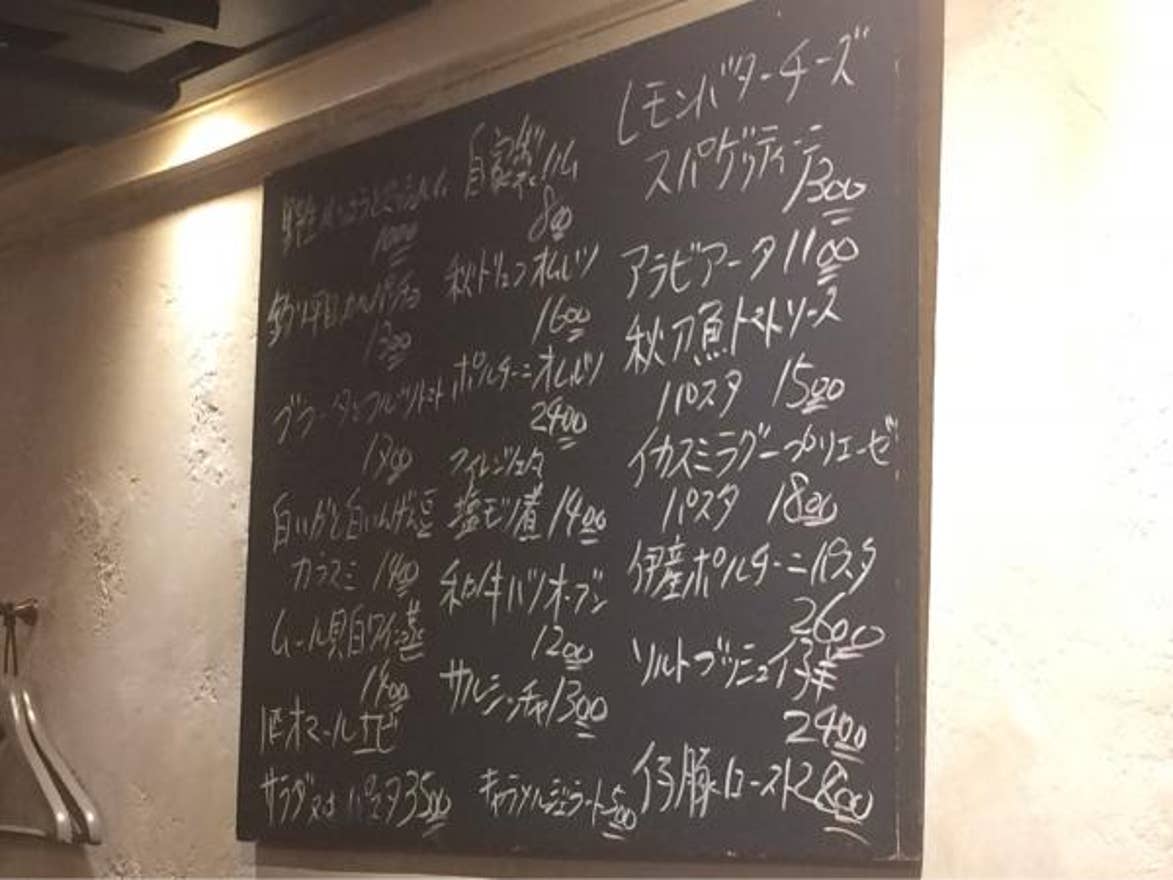 自家製ハム
800
秋トリュフオムレツ
1600
ポルチーニオムレツ
2400
塩モツ煮 1400
和牛ハツオーブン
1200
サルシッチャ1300
キャラメルジェラート500
1000
1300
ブラータとフルーツトマト
白いかと白いんげん豆
カラスミ 1400
ムール貝白ワイン蒸
オマールエビ
サラダ又は パスタ3500
レモンバターチーズ
スパゲッティーニ
1300
アラビアータ 1100
秋刀魚トマトソース
パスタ 1500
イカスミラグープリエーゼ
パスタ 1800
伊産ポルチーニパスタ
2600
ソルトブッシュ仔羊
2400
仔豚ロースト2800